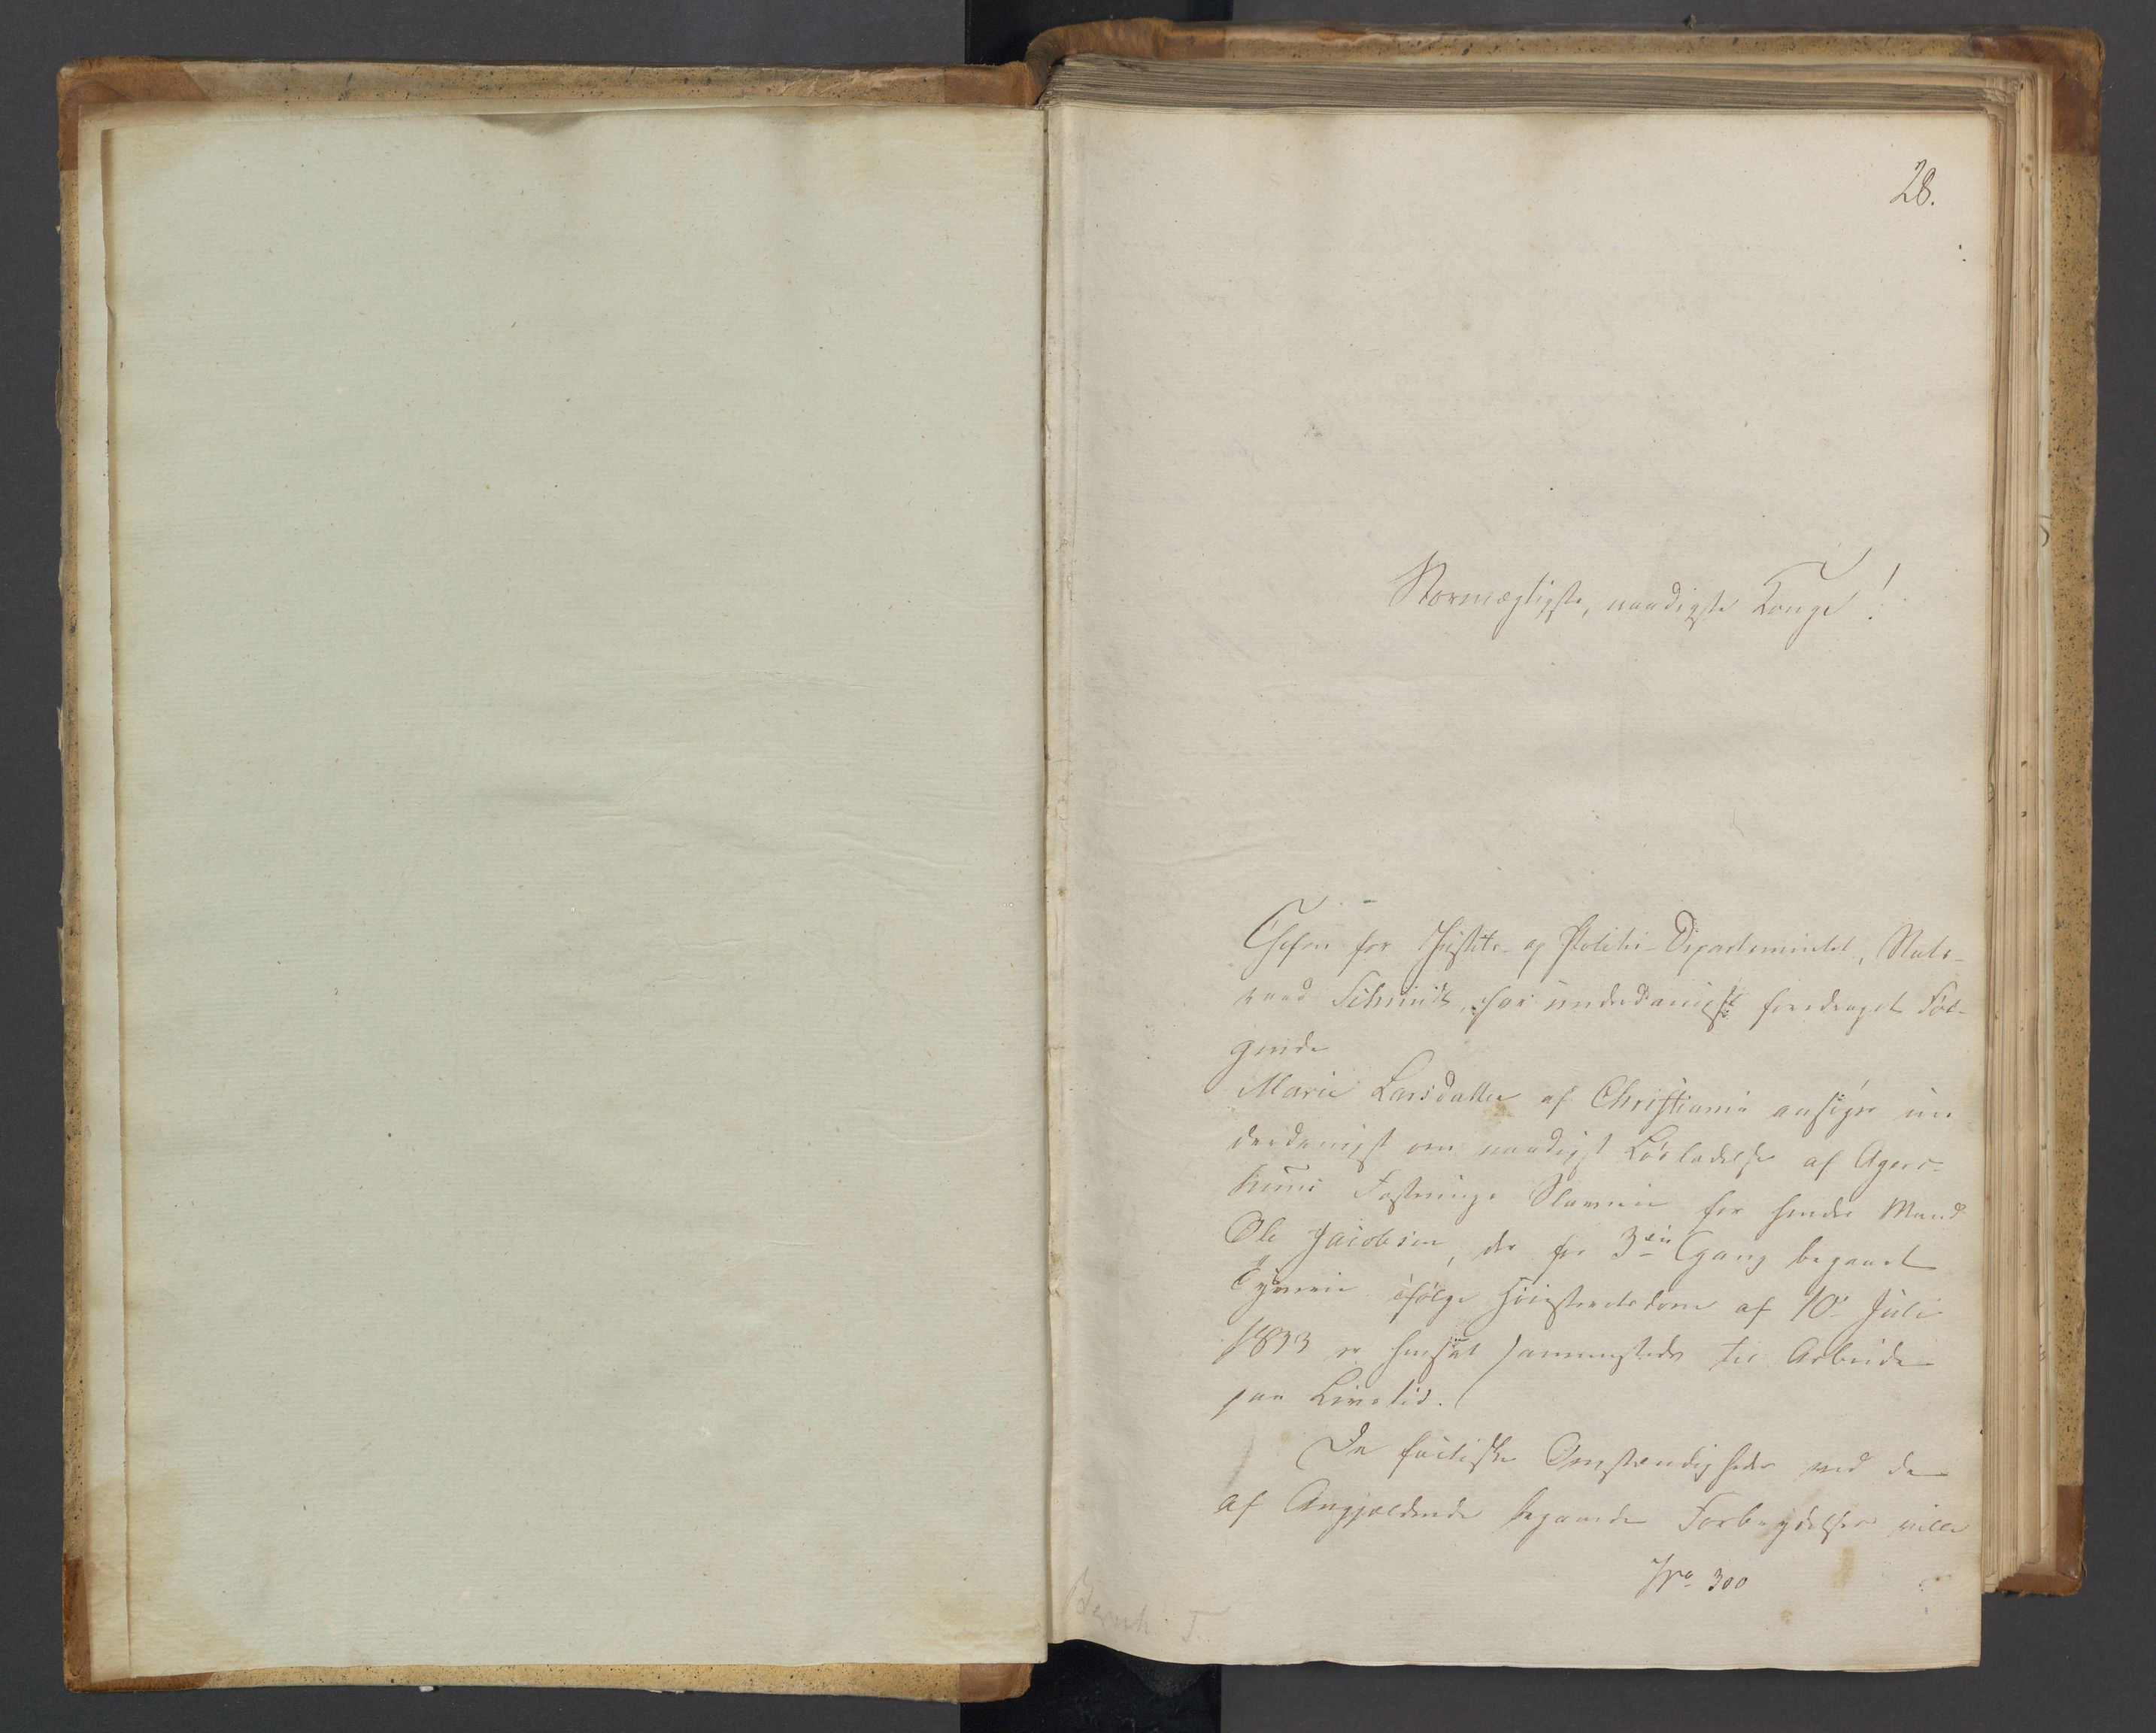 28.
Stormægtigste, naadigste Konge!
Chefen for Justits- og Politie-Departementet, Stats-
raad Schmidt, har underdanigst foredraget Føl-
gende
Marie Larsdatter af Christiania ansøger un
derdanigst om naadigst Løsladelse af Agers-
huus Fæstnings Slaverie for hendes Mand
Ole Jacobsen, der for 3die Gang begaaet
Tyverie ifølge Høiesteretsdom af 10de Juli
1833 er hensat sammesteds til Arbeide
paa Livstid.
De factiske Omstændigheder ved de
af Angjældende begaaede Forbrydelser ville
No 300